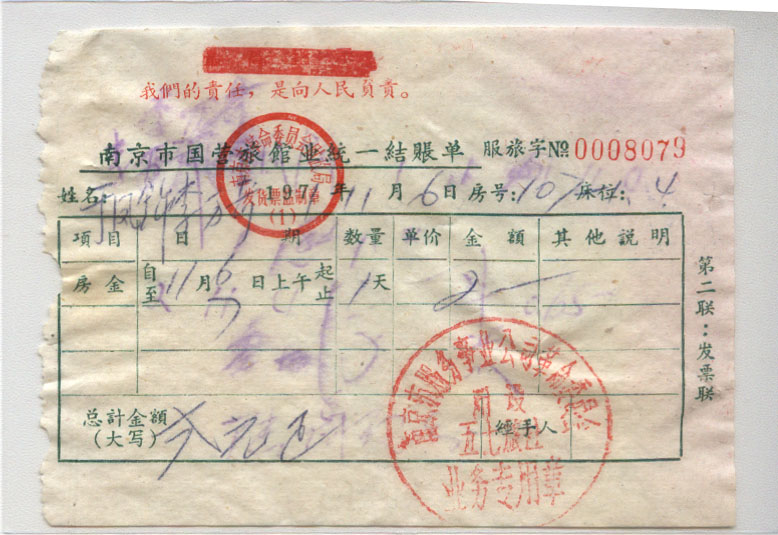 我們的責任，是向人民負責。
南京市国营旅館业統一結賬单 服旅字№0008079
姓名： 197 年 11 月 6 日 房号：107 床位：4
項目 日期 数量 单价 金額 其他説明
房金 自 11 月 6 日上午 起 1 天 2—
至 7 止
总計金額
（大写） 元正 經手人
第二联：发票联
发货票監制章
(1)
南京市服务事业公司革命委員会
附設
五九旅社
业务专用章